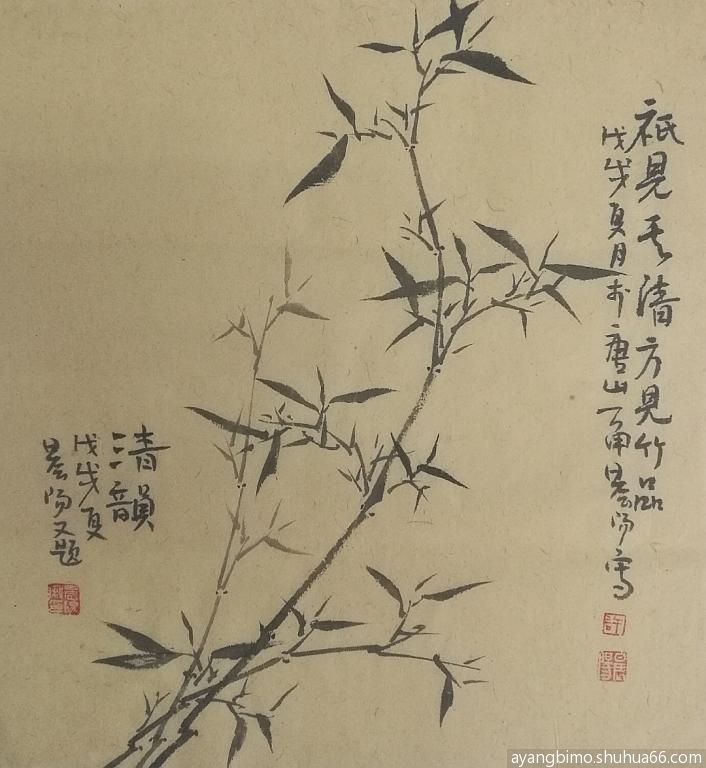 祇見其清方見竹品
戊戌夏月於唐山
晨陽寫
清韻
戊戌夏
晨陽又題
許
ayangbimo.shuhua66.com